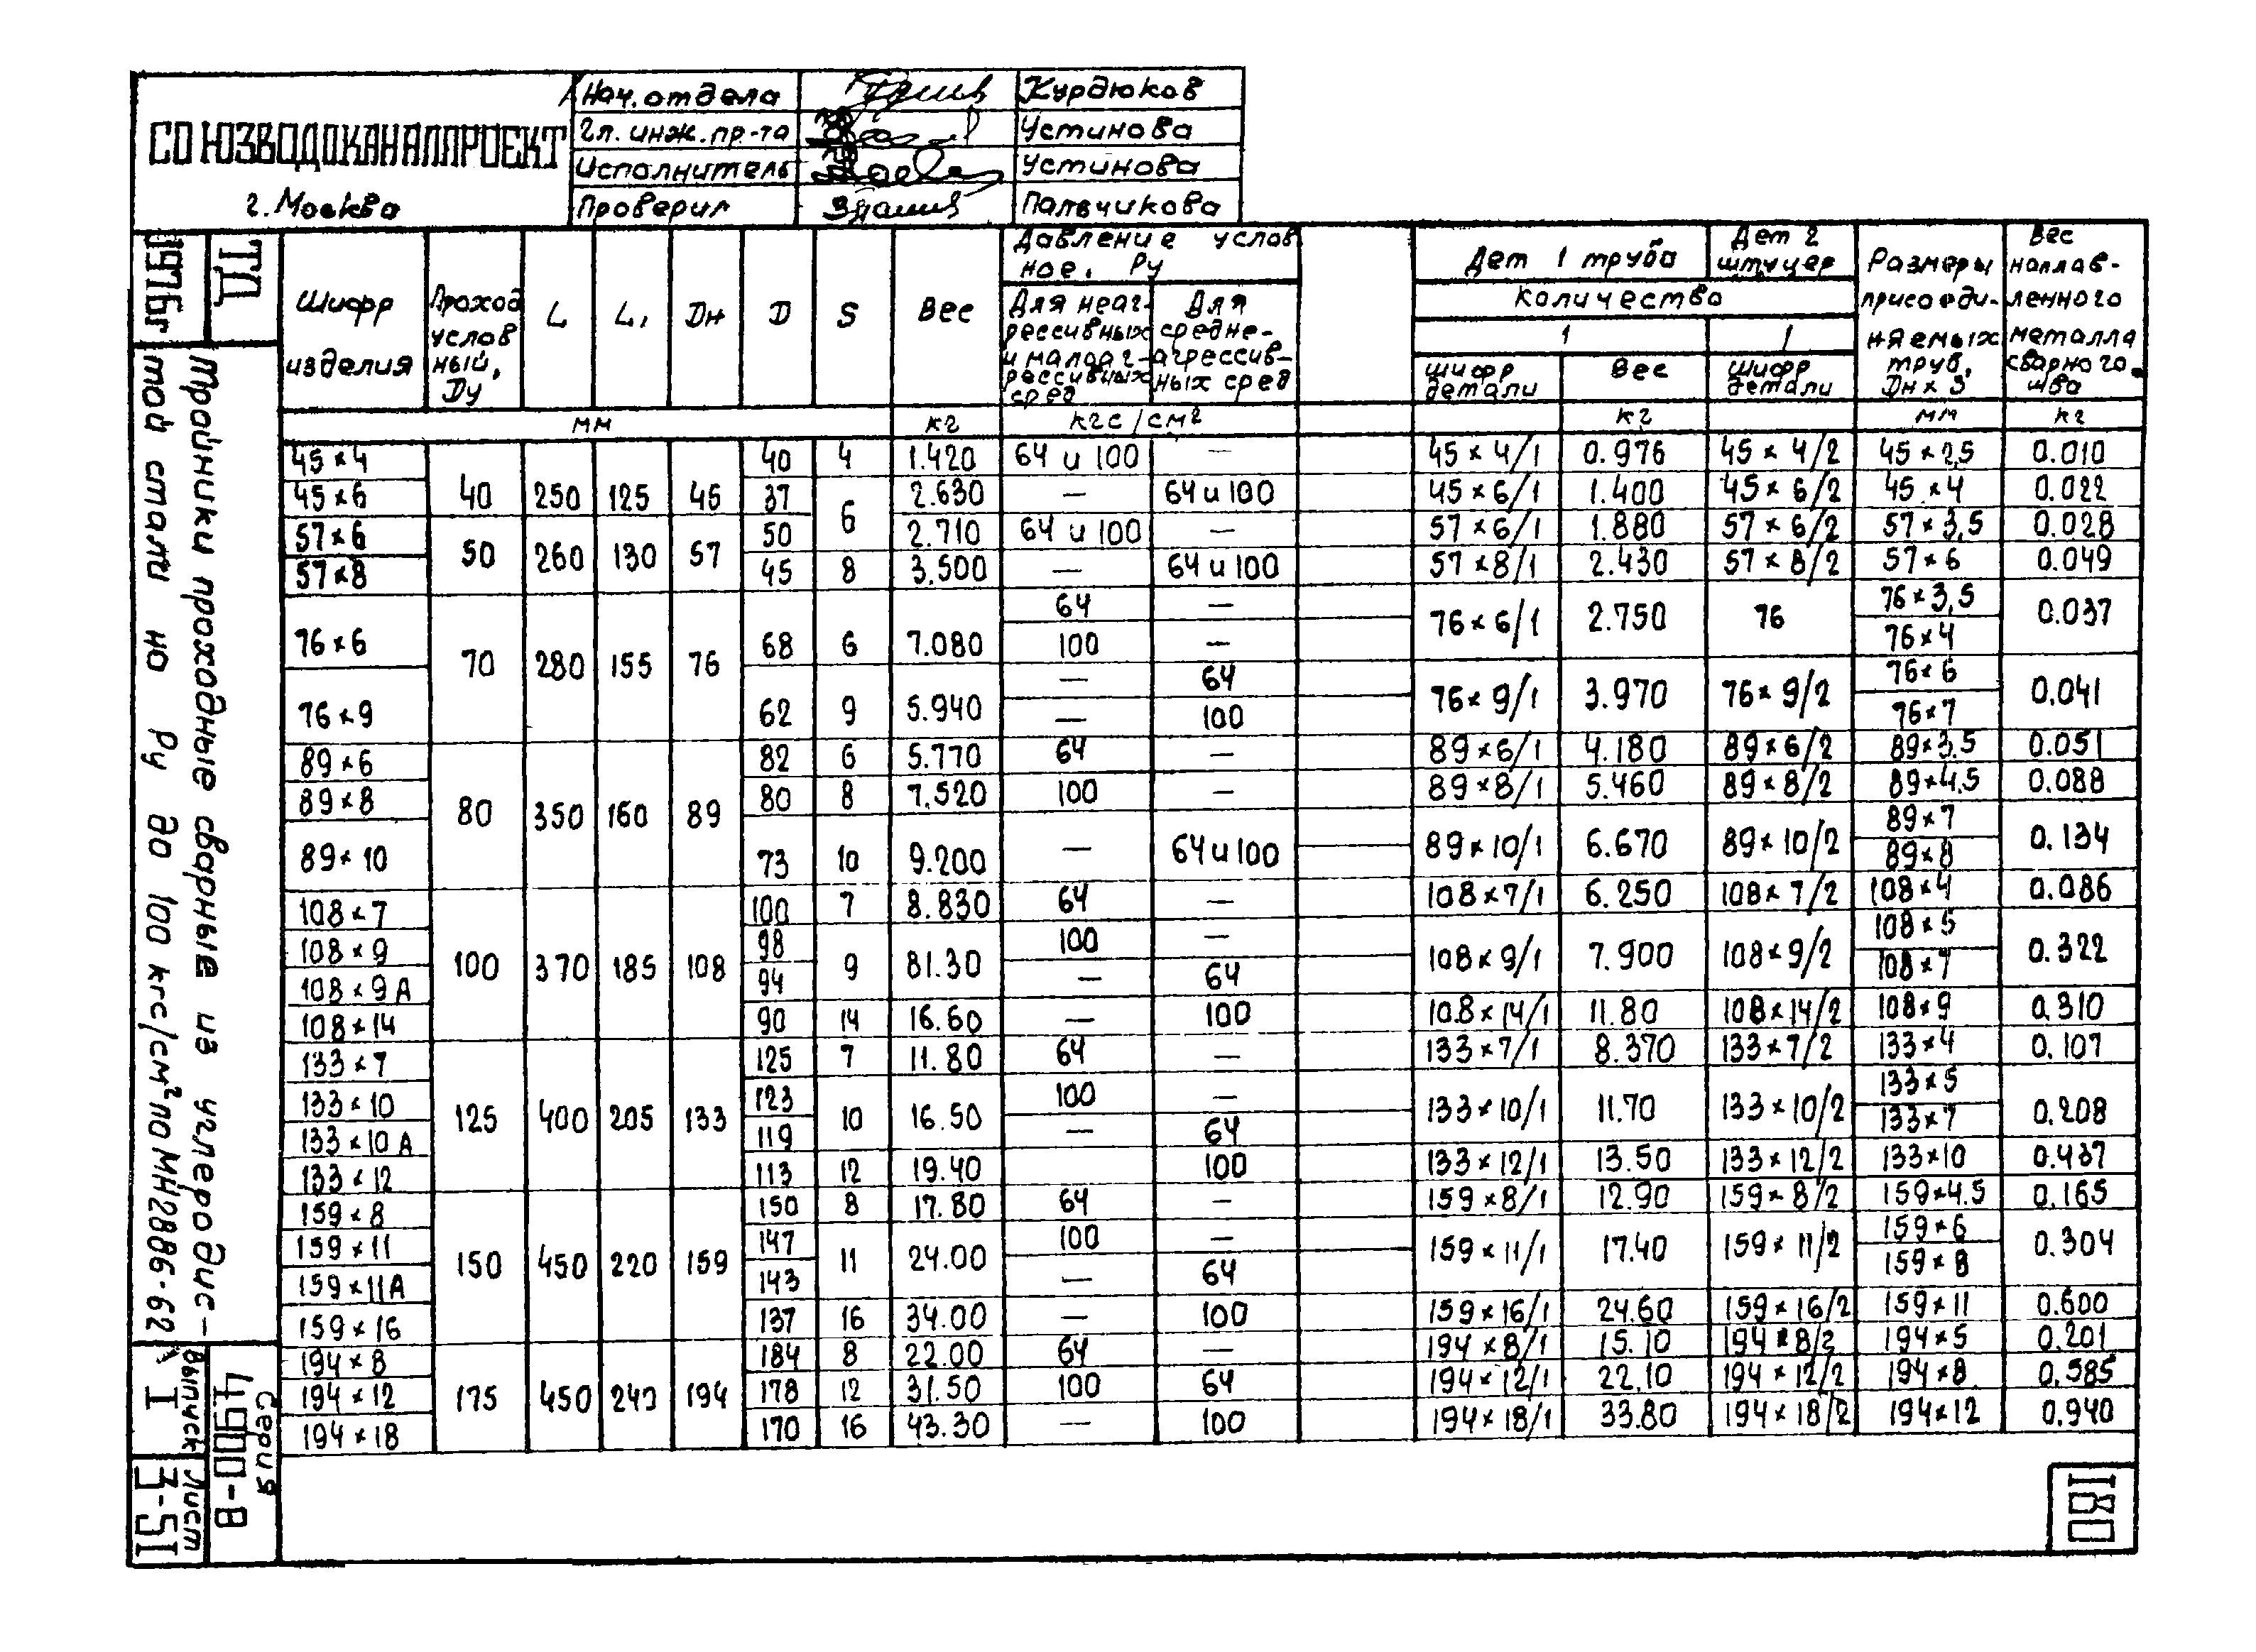 СОЮЗВОДОКАНАЛПРОЕКТ
г. Москва
Нач. отдела Курдюков
Гл. инж. пр-та Устинова
Исполнитель Устинова
Проверил Пальчикова
1976г
ТД
Тройники проходные сварные из углеродис-
той стали на Ру до 100 кгс/см² по МН2886-62
Серия
4900-8
Выпуск
I
Лист
3-51
Шифр изделия
Проход услов ный, Ду
L
L₁
Дн
D
S
Вес
Давление услов ное, Ру
Для неаг- рессивных и малоаг- рессивных сред
Для средне- агрессив- ных сред
Дет 1 труба
Дет 2 штуцер
количество
1 1
шифр детали
Вес
шифр детали
Размеры присоеди- няемых труб, Дн х S
Вес наплав- ленного металла сварного шва
мм кг кгс/см² кг мм кг
45×4 40 4 1.420 64 и 100 — 45×4/1 0.976 45×4/2 45×2,5 0.010
45×6 40 250 125 45 37 6 2.630 — 64 и 100 45×6/1 1.400 45×6/2 45×4 0.022
57×6 50 2.710 64 и 100 — 57×6/1 1.880 57×6/2 57×3,5 0.028
57×8 50 260 130 57 45 8 3.500 — 64 и 100 57×8/1 2.430 57×8/2 57×6 0.049
64 — 76×3,5
76×6 68 6 7.080 100 — 76×6/1 2.750 76 76×4 0.037
70 280 155 76
— 64 76×6
76×9 62 9 5.940 — 100 76×9/1 3.970 76×9/2 76×7 0.041
89×6 82 6 5.770 64 — 89×6/1 4.180 89×6/2 89×3.5 0.051
89×8 80 8 7.520 100 — 89×8/1 5.460 89×8/2 89×4,5 0.088
80 350 160 89
89×7
89×10 73 10 9.200 — 64 и 100 89×10/1 6.670 89×10/2 89×8 0.134
108×7 100 7 8.830 64 — 108×7/1 6.250 108×7/2 108×4 0.086
108×9 98 100 — 108×5
100 370 185 108 9 81.30 108×9/1 7.900 108×9/2 0.322
108×9А 94 — 64 108×7
108×14 90 14 16.60 — 100 108×14/1 11.80 108×14/2 108×9 0.310
133×7 125 7 11.80 64 — 133×7/1 8.370 133×7/2 133×4 0.107
133×10 123 100 — 133×5
125 400 205 133 10 16.50 133×10/1 11.70 133×10/2 0.208
133×10А 119 — 64 133×7
133×12 113 12 19.40 — 100 133×12/1 13.50 133×12/2 133×10 0.437
159×8 150 8 17.80 64 — 159×8/1 12.90 159×8/2 159×4.5 0.165
159×11 147 100 — 159×6
150 450 220 159 11 24.00 159×11/1 17.40 159×11/2 0.304
159×11А 143 — 64 159×8
159×16 137 16 34.00 — 100 159×16/1 24.60 159×16/2 159×11 0.600
194×8 184 8 22.00 64 — 194×8/1 15.10 194×8/2 194×5 0.201
194×12 175 450 240 194 178 12 31.50 100 64 194×12/1 22.10 194×12/2 194×8 0.585
194×18 170 16 43.30 — 100 194×18/1 33.80 194×18/2 194×12 0.940
180